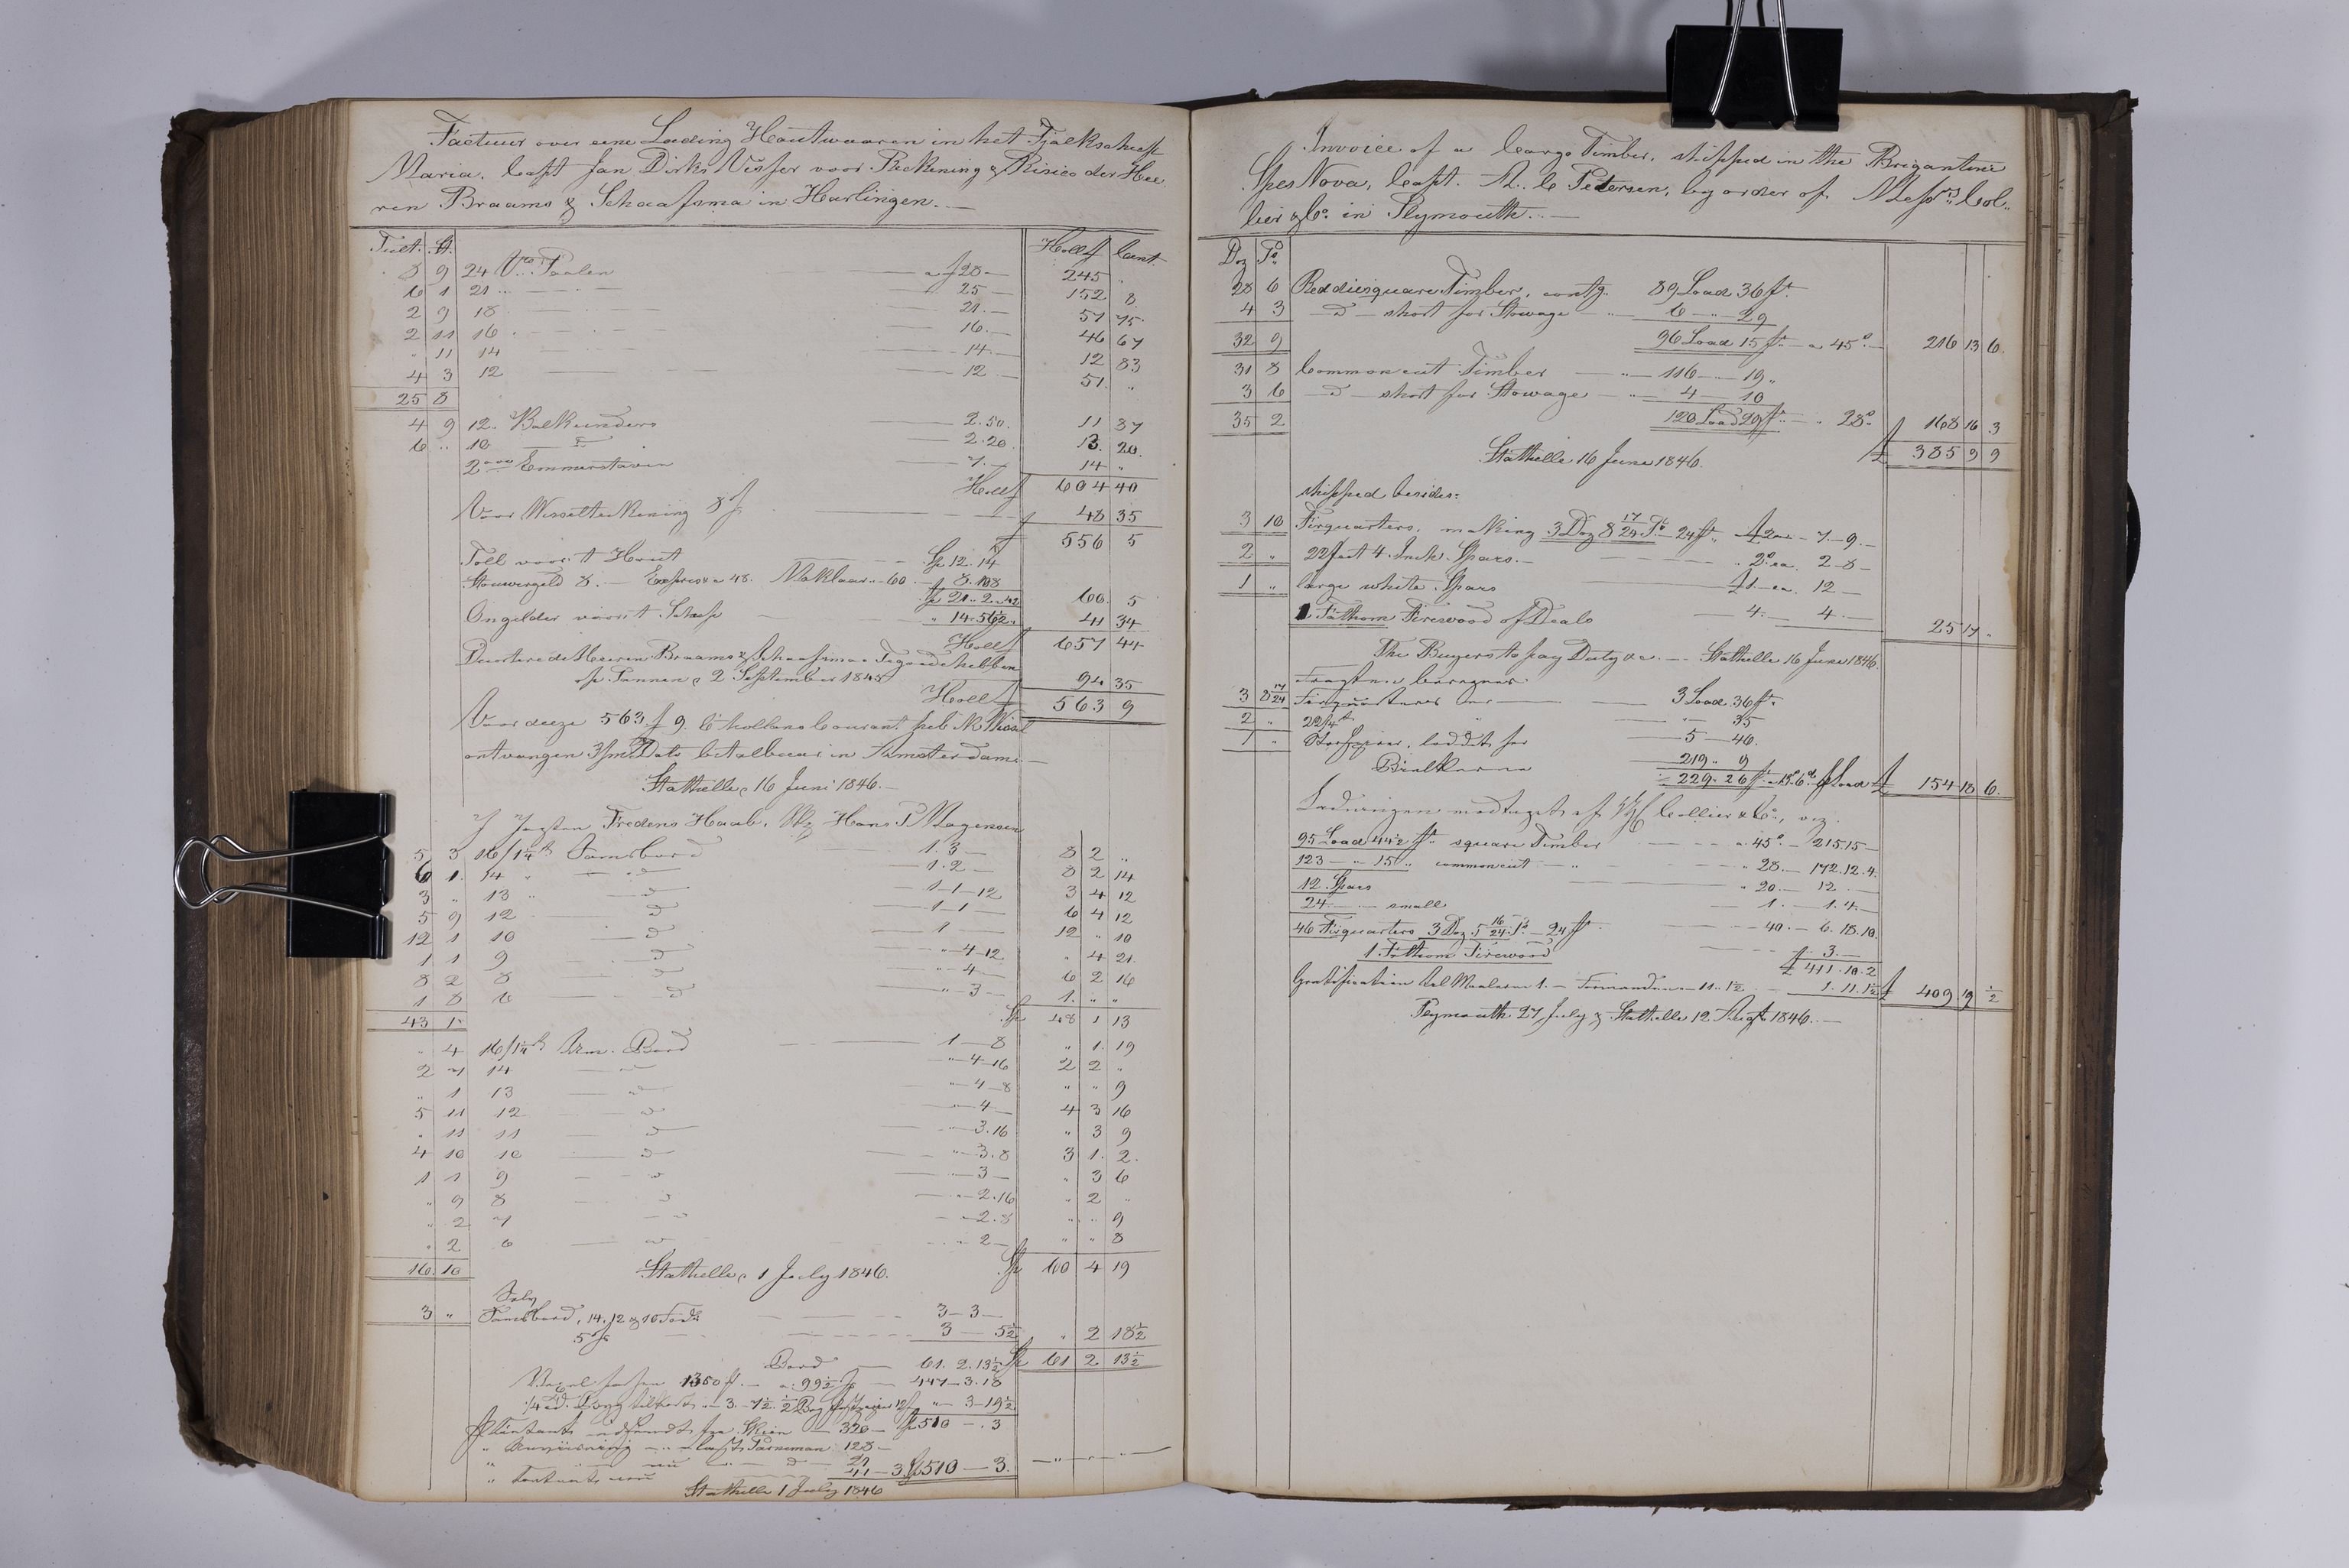 Factuur over eene Lading Houtwaaren in het Tjalkscheep
Maria, Capt Jan Dirks Visser voor Rekening & Risico der Hee
ren Braams & Schaafsma in Harlingen.
Tult. St. Holl f Cent.
8 9 24 Vt Paalen a f 28 — 245 "
6 1 21 " 25 — 152 8
2 9 18 21 — 57 75
2 11 16 16 — 46 67
" 11 14 14 — 12 83
4 3 12 12 — 51 "
25 8
4 9 12 Balkunders 2.50 11 37
6 " 10 2.20 13 20
2000 Emmerstaven 7. — 14 "
Holl f 604 40
Voor Wisselrekening 8 f 48 35
f 556 5
Toll voor t Hout Sp 12. 14
Stouwergeld 8. — Expres a 48. Maklaar 60. — 8. 108
Sp 21. 2. 100 5
Ongelder voor t Scheep 14. 41 34
Holl f 657 44
Heeren Braams & Schaafsma Tegoed hebben
op Tannen, 2 September 1845 94 35
Holl f 563 9
Voor deeze 563 f 9 C hollans Courant heb ik Wissel
ontvangen 3/m Dato betalbaar in Amsterdam. —
Stathelle, 16 Juni 1846. —
I Jagten Fredens Haab, Hans P Magensen
5 3 16/1¼ Tomsbord 1. 3 — 8 2 "
6 1 14 " d 1. 2 — 8 2 14
3 " 13 " d 1 — 1 — 12 3 4 12
5 9 12 d 1 — 1 — 6 4 12
12 1 10 d 1 — 12 " 10
1 1 9 d " — 4 — 12 " 4 21
8 2 8 d " — 4 — 6 2 16
1 8 6 d " — 3 — 1 " "
43 1 Sp 48 1 13
" 4 16/1¼ Bord 1 — 8 " 1 19
2 7 14 " — 4 — 16 2 2 "
" 1 13 " — 4 — 8 " " 9
5 11 12 d " — 4 — 4 3 16
" 11 11 d " — 3. 16 " 3 9
4 10 10 d " — 3. 8 3 1 2
1 1 9 " — 3 — " 3 6
" 9 8 " — 2. 16 " 2 "
" 2 7 " — 2. 8 " " 9
" 2 6 " — 2 — " " 8
16 10 Stathelle, 1 July 1846. Sp 60 4 19
3 " Tomsbord, 14, 12 & 10 Fods 3 — 3 —
3 — 5½ " 2 18½
Bord 61. 2. 13½ Sp 61 2 13½
1350 f. — a 99½ — 447 — 3. 18
" — 3 — 19½
fra Skien — 320 — Sp 510 — . 3
Anviisning — Capt 128 —
d — 21
" Contant 41 — 3 Sp 510 — 3.
Stathelle 1 July 1846
Invoice of a Cargo Timber, shipped in the Brigantine
Spes Nova, Capt. A. C Petersen, by order of Messrs Col
lier & Co in Plymouth. —
Doz Ps
28 6 Reddiesquare Timber, contg. 89 Load 36 ft
4 3 d — short for Stowage 6 — " 29
32 9 96 Load 15 ft — a 45s — 216 13 6
31 8 Commoncut Timber — " — 116 — " 19 "
3 6 d — short for Stowage — " 4 — 10
35 2 120 Load 29 ft — " 28s £ 168 16 3
Stathelle 16 June 1846. £ 385 9 9
shipped besides:
3 10 Firquarters, making 3 Doz 8 17/24 Ps — 24 ft " £ 2 a — 7. — 9. —
2 " 22 feet 4 Inch. Spars. — " 2s ea. 2 — 8 —
1 " large white Spars £ 1 — ea. 12 —
1 Fathom Firewood of Deals 4. — 4 — 25 17 "
The Buyers to pay Duty &c. — Stathelle 16 June 1846.
Fragten beregnes:
3 8 17/24 Firquarters 3 Load 36 ft
2 " 22/4 " — 35
1 " 5 — 40.
Bielkerne 219 " 9
229 " 26 ft — 13s 6d £ 154 18 6
Ladningen modtaget af Collier & Co, viz.
95 Load 44½ ft square Timber — a 45s — 215 15 —
123 — " 15 " commoncut — " 28. — 172. 12. 4
12 Spars " 20. — 12 —
24 — small — 1. — 1. 4 —
46 Firquarters 3 Doz 5 16/24 Ps — 24 ft 40. — 6. 18. 10
1 Fathom Firewood — 3. —
£ 411. 10. 2
Gratification 1. — 11. 1½ — 1. 11. 1½ £ 409 19 ½
Plymouth 27 July & Stathelle 12 Augt 1846. —